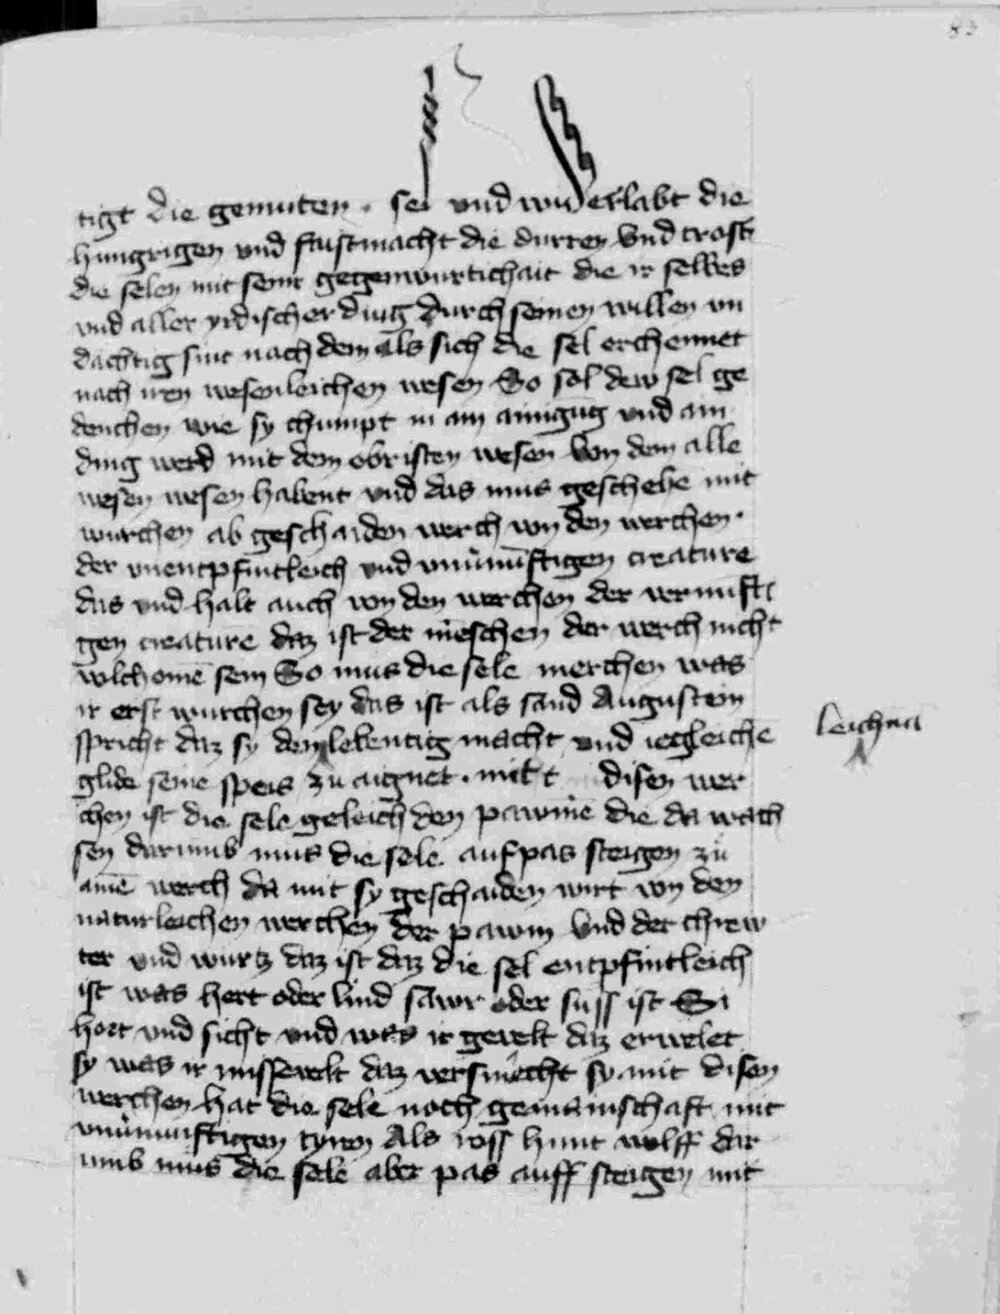 83
tigt die gemuten . sei und wid erlabt die
hungrigen und faistmacht die durren Vnd trost
die selen mit seiner gegenwurtichait die ir selbes
vnd aller yrdischer ding durch seinen willen vn
dachtig sint nach dem als sich die sel erchennet
nach iren wesenleichen wesen So sol dew sel ge
denchen wie sy chumpt in ain ainigūg vnd ain
ding werd mit dem obristen wesen Von dem alle
wesen wesen habent vnd das mus geschehē mit
wurchen ab geschaiden werch von den werchen
der vnentpfintleich vnd vnuernūftigen creature
das vnd halt auch von den werchen der vernufti
gen creature daz ist der mēschen der werch nicht
volchomē sein So mus die sele merchen was
ir erst wurchen sey das ist als sand Augustein
spricht daz sy den lebentig macht vnd iegleichē
leichnā
glide seine speis zu aignet . mit disen wer
chen ist die sele geleich den pawmē die da wach
sen darumb mus die sele auf pas steigen zu
ainē werch da mit sy geschaiden wirt von den
naturleichen werchen der pawm Vnd der chrew
ter vnd wurtz daz ist daz die sel entpfintleich
ist was hert oder lind sawr oder suss ist Si
hort vnd sicht vnd was ir geuelt daz erwelet
sy was ir missevelt daz versmecht sy mit disen
werchen hat die sele noch gemainschaft mit
vnuernunftigen tyren Als ross hunt wolff dar
umb mus die sele aber pas auff steigen mit